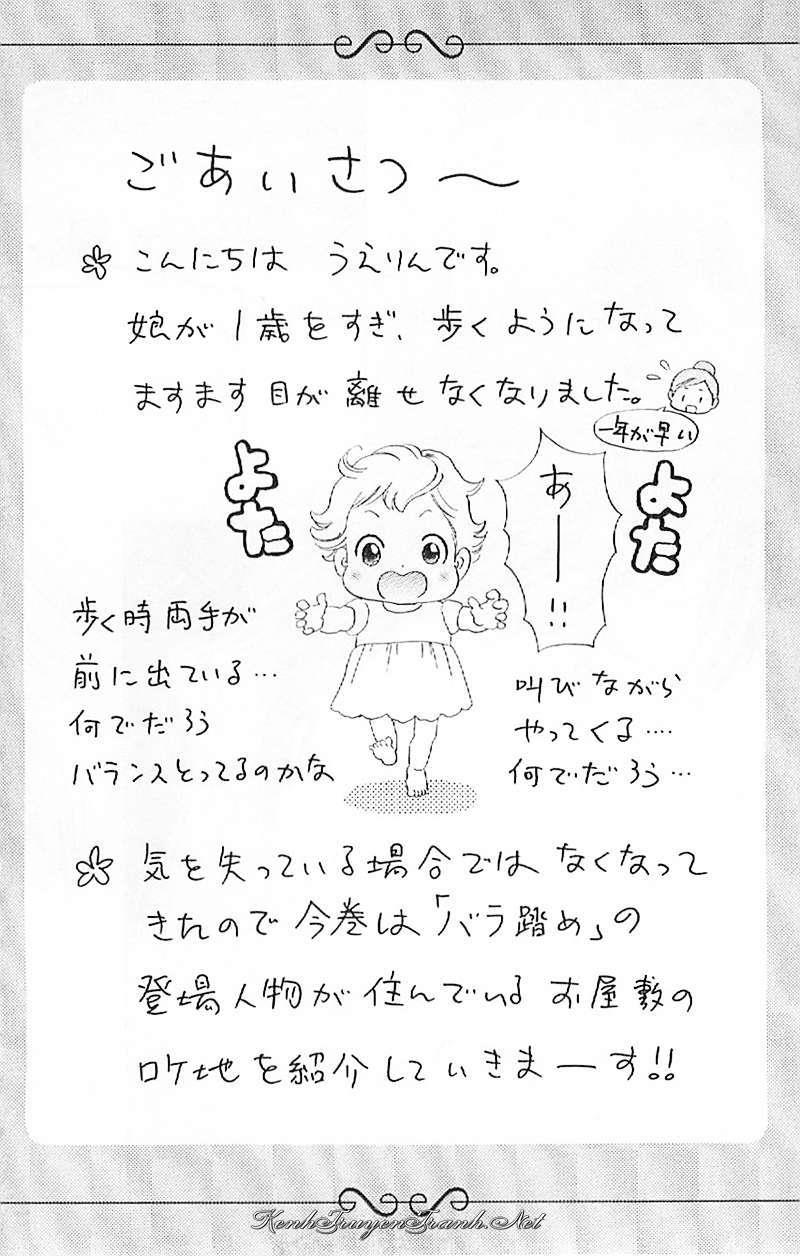 ごあいさつ〜
こんにちは うえりんです。
娘が1歳をすぎ、歩くようになって
ますます目が離せなくなりました。
一年が早い
よた
あー!!
よた
歩く時両手が
前に出ている…
何でだろう
バランスとってるのかな
叫びながら
やってくる‥‥
何でだろう…
気を失っている場合ではなくなって
きたので今巻は「バラ踏め」の
登場人物が住んでいるお屋敷の
ロケ地を紹介していきまーす!!
KenhTruyenTranh.Net